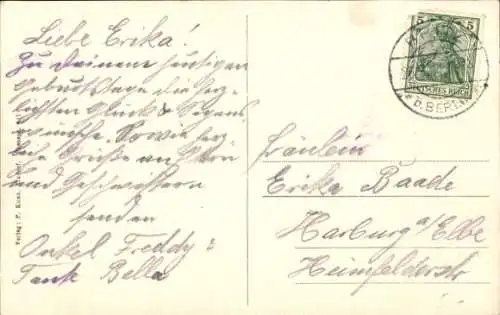 Liebe Erika!
Zu deinem heutigen
Geburtstage die herz-
lichsten Glück & Segens
wünsche. Sowie herz
liche Grüße an
und Geschwistern
senden
Onkel Freddy &
Tante Bella
5 5
DEUTSCHES REICH
Fräulein
Erika Baade
Harburg a/ Elbe
Heimfelderstr
Verlag: